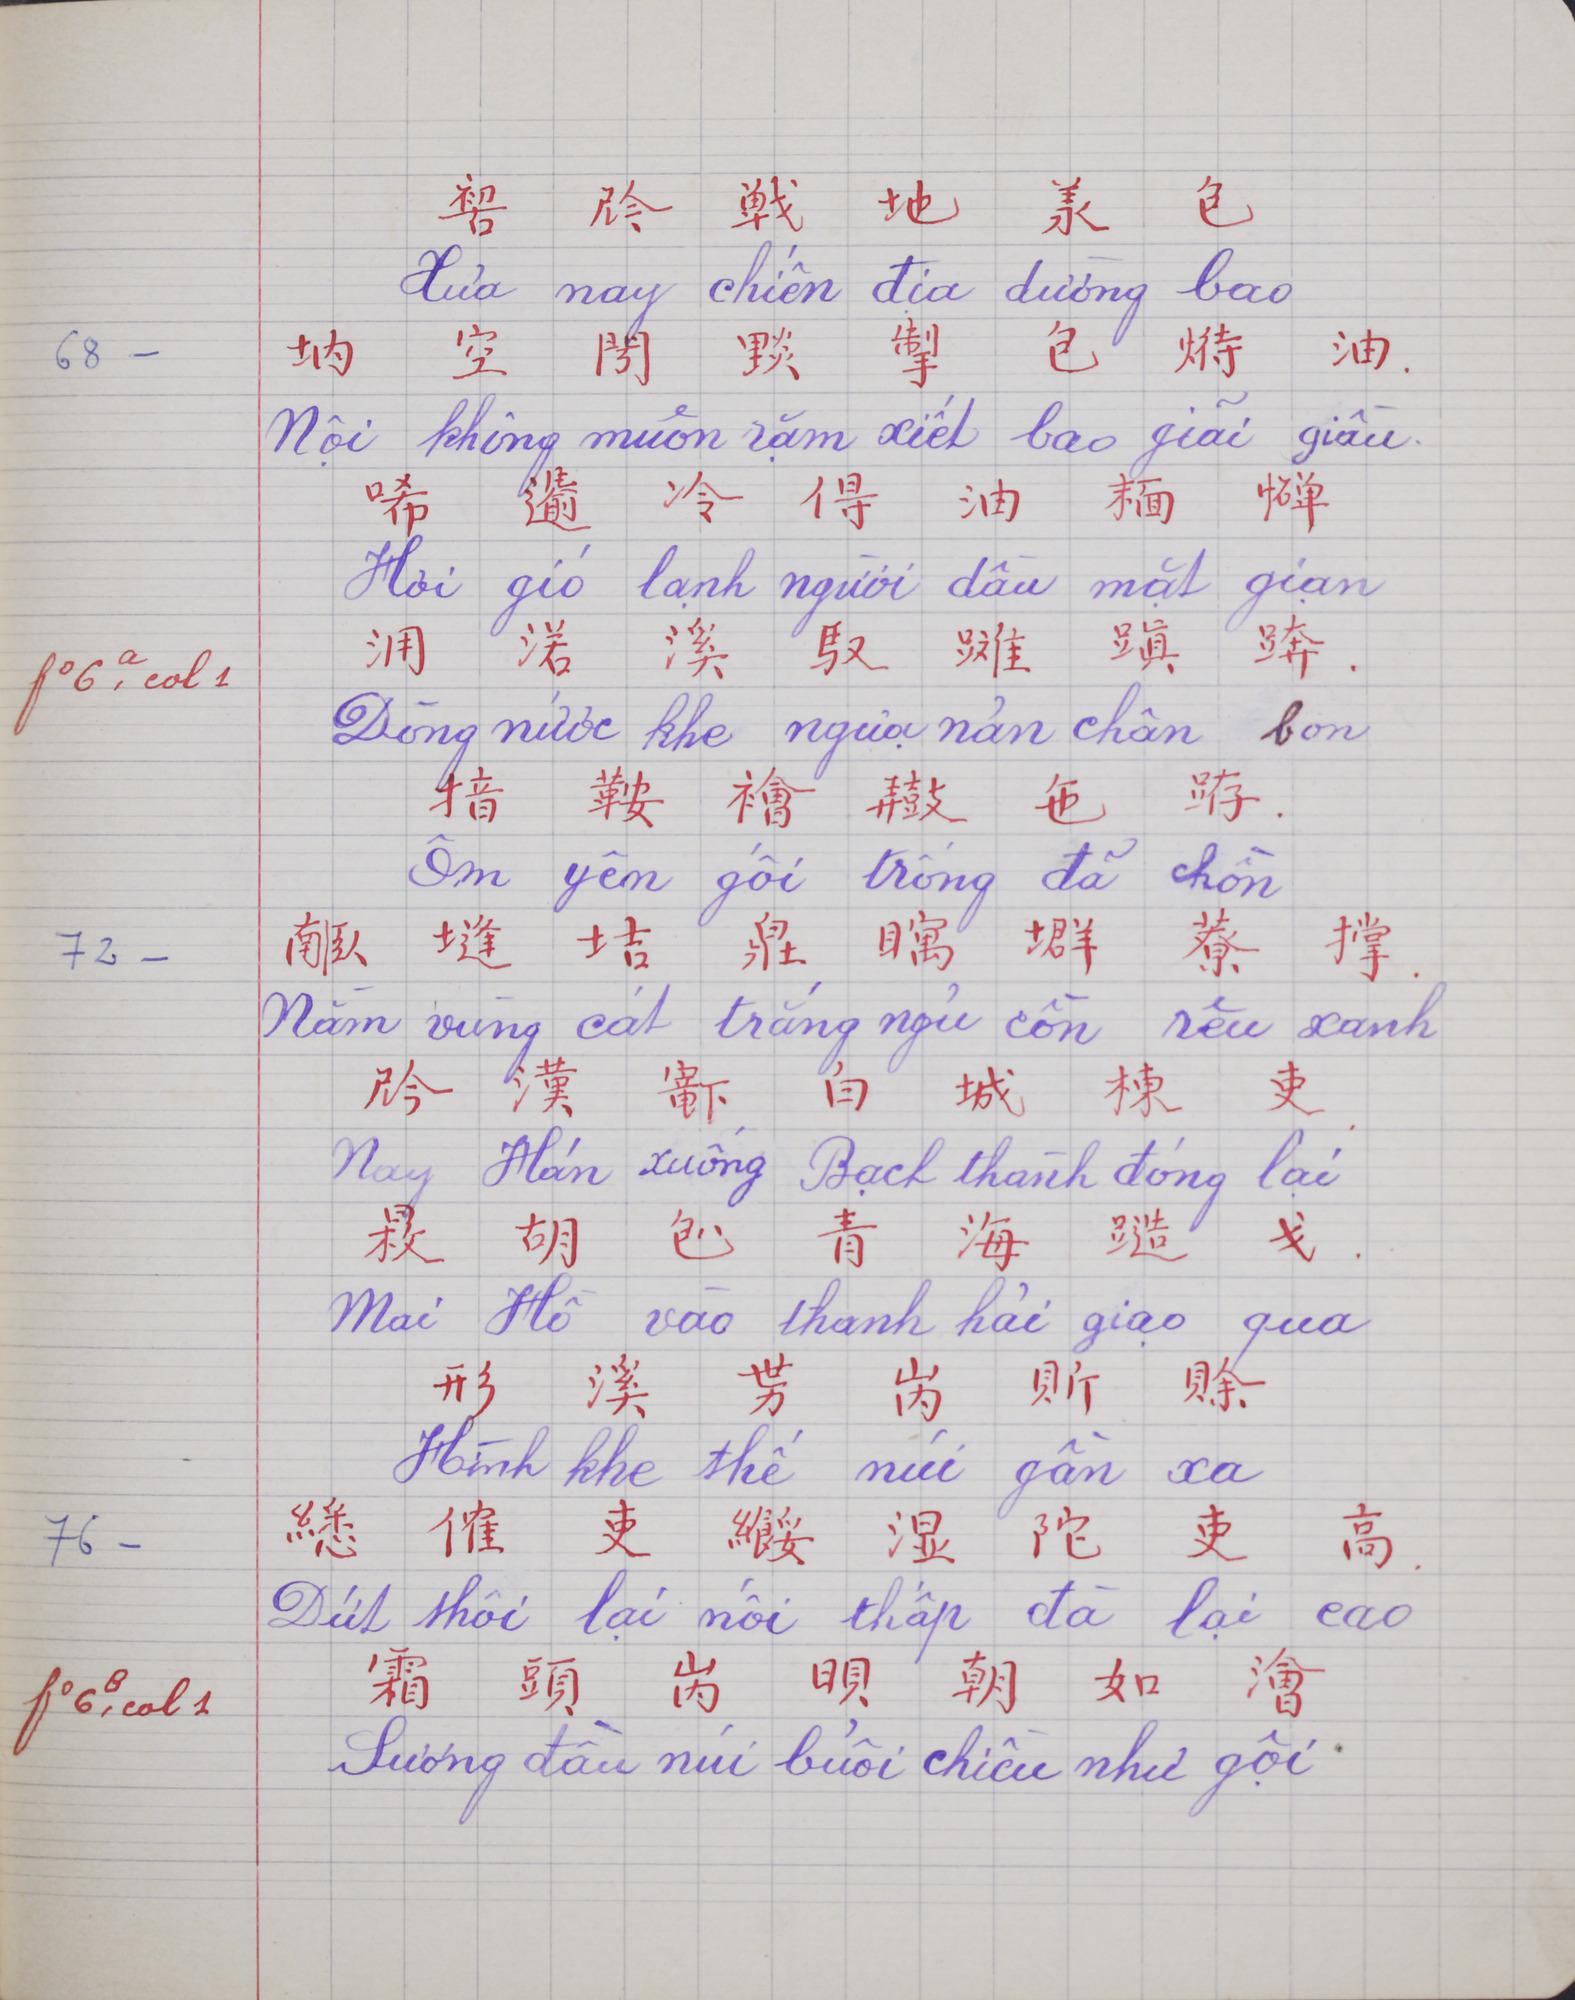 𠸗 𫢩 戰 地 羕 包
Xưa nay chiến địa dường bao
68 - 坳 空 閍 𡑝 掣 包 𤊡 油.
Nội không muôn rặm xiết bao giãi giầu.
唏 𩙍 冷 得 油 𩈘 憚
Hơi gió lạnh người dầu mặt gián
fº6ª, col 1 㳥 渃 溪 馭 𨆶 蹎 𨁏.
Dòng nước khe ngựa nản chân bon
揞 鞍 襘 𪔠 㐌 𨁥.
Ôm yên gối trống đã chồn
72 - 𦣰 塳 𡋥 𤽸 𥊚 塸 䕩 撑.
Nằm vùng cát trắng ngủ cồn rêu xanh
𫢩 漢 𨑜 白 城 棟 吏.
Nay Hán xuống Bạch thành đóng lại
𣈕 胡 𠓨 青 海 𨅉 戈.
Mai Hồ vào thanh hải giạo qua
形 溪 势 𡶀 𧵆 賖
Hình khe thế núi gần xa
76 - 𦄵 催 吏 𦇒 湿 陀 吏 高.
Dứt thôi lại nối thấp đà lại cao
霜 頭 𡶀 𣇜 朝 如 澮
fº6ᴮ, col 1 Sương đầu núi buổi chiều như gội